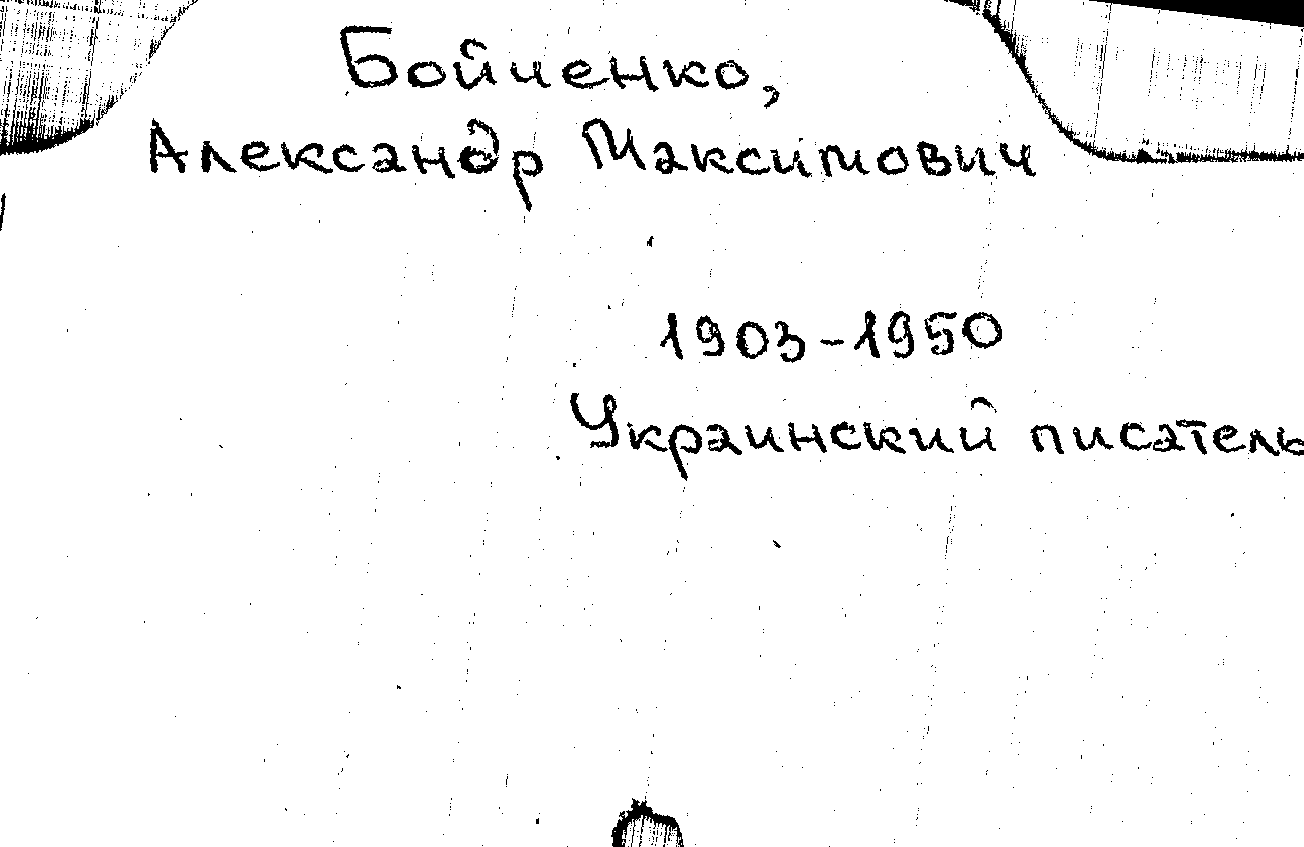 Бойченко,
Александр Максимович
1903-1950
Украинский писатель